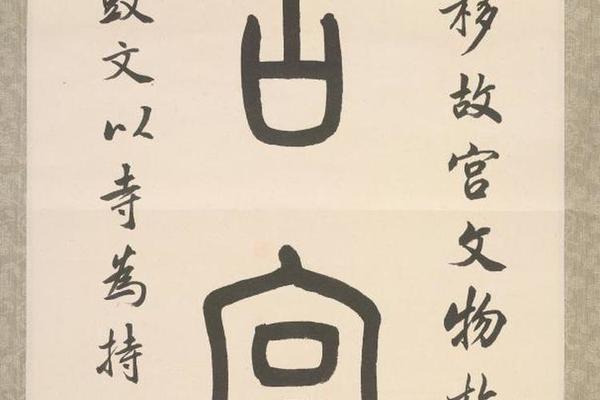 移故宮文物故
鼓文以寺為持